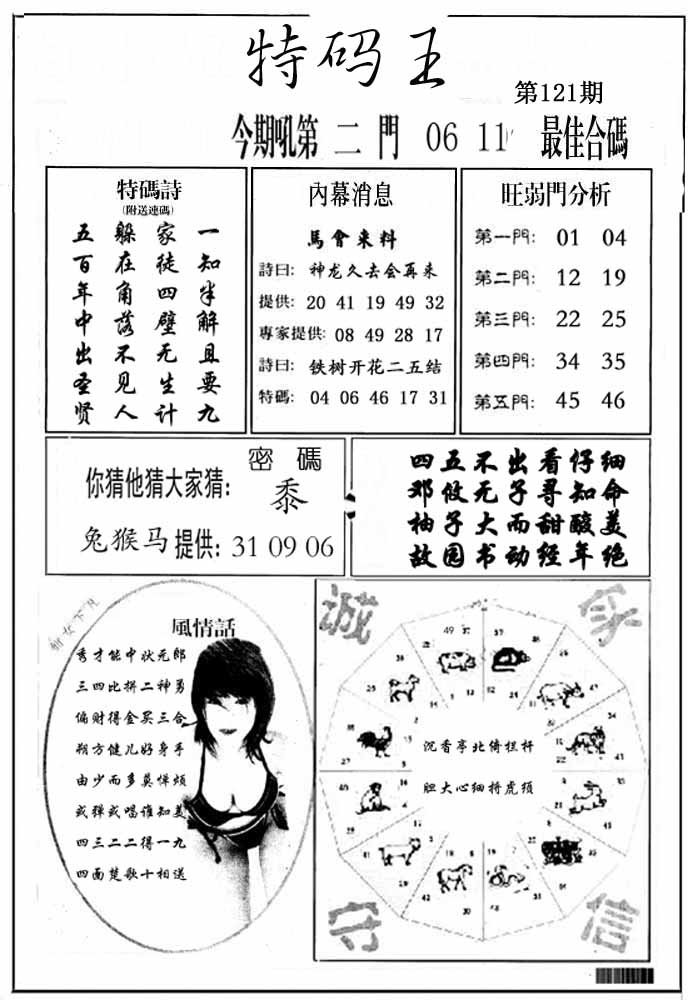 特码王
第121期
今期吼第 二 門 06 11 最佳合碼
特碼詩
(附送連碼)
一知半解且要九
家徒四壁无生计
躲在角落不见人
五百年中出圣贤
內幕消息
馬會来料
詩曰: 神龙久去会再来
提供: 20 41 19 49 32
專家提供: 08 49 28 17
詩曰: 铁树开花二五结
特碼: 04 06 46 17 31
旺弱門分析
第一門: 01 04
第二門: 12 19
第三門: 22 25
第四門: 34 35
第五門: 45 46
密碼
你猜他猜大家猜: 黍
兔猴马提供: 31 09 06
四五不出看仔细
邓攸无子寻知命
柚子大而甜酸美
故园书动经年绝
女下凡
風情話
秀才能中状元郎
三四比拼二神勇
偏财得金买三合
朔方健儿好身手
由少而多莫惮烦
或弹或唱谁知美
四三二二得一九
四面楚歌十相送
誠 家
沉香亭北倚栏杆
胆大心细捋虎须
守 信